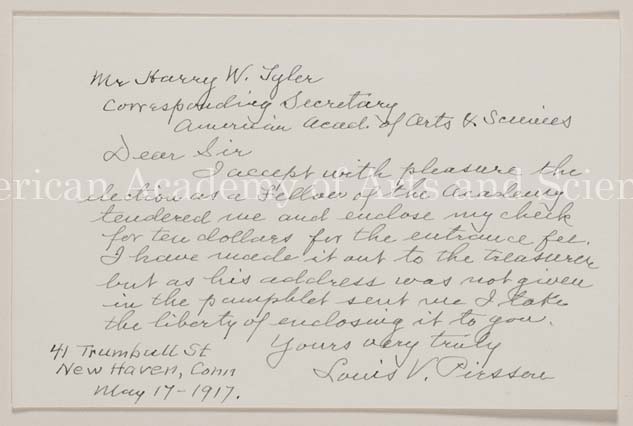 Mr Harry W. Tyler
Corresponding Secretary
American Acad. of Arts & Sciences
Dear Sir
I accept with pleasure the
election as a Fellow of the Academy
tendered me and enclose my check
for ten dollars for the entrance fee.
I have made it out to the treasurer
but as his address was not given
in the pamphlet sent me I take
the liberty of enclosing it to you.
Yours very truly
Louis V. Pirsson
41 Trumbull St
New Haven, Conn
May 17-1917.
merican Academy of Arts and Scien